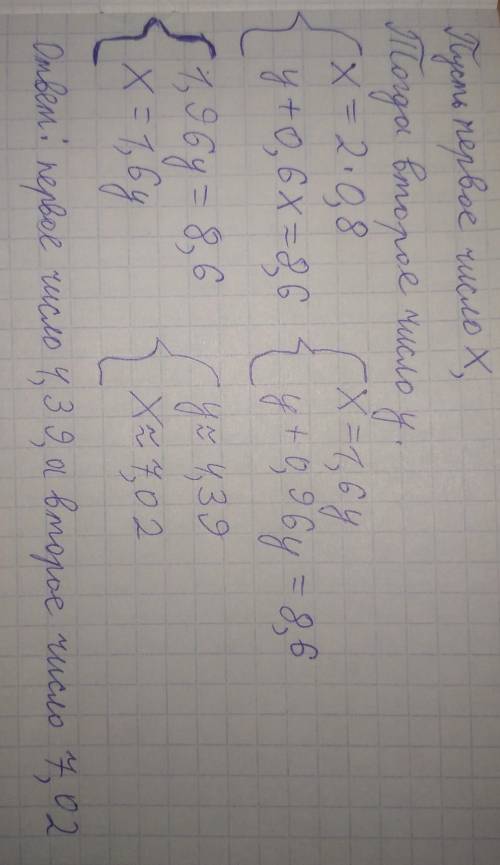 Пусть первое число x,
Тогда второе число y.
{ x = 2·0,8
y + 0,6x = 8,6
{ x = 1,6y
y + 0,96y = 8,6
{ 1,96y = 8,6
x = 1,6y
{ y ≈ 4,39
x ≈ 7,02
Ответ: первое число 4,39, а второе число 7,02